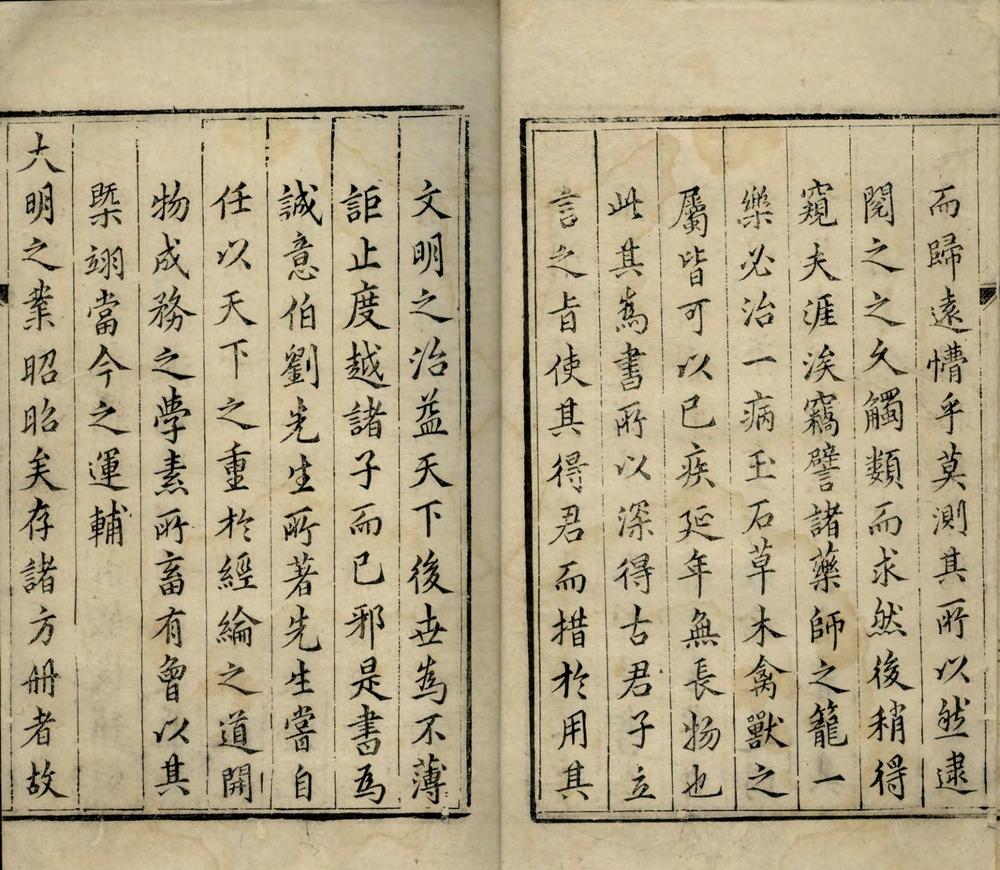 而歸遠懵乎莫測其所以然逮
閱之之久觸類而求然後稍得
窺夫涯涘竊譬諸藥師之籠一
樂必治一病玉石草木禽獸之
屬皆可以已疾延年無長物也
此其為書所以深得古君子立
言之旨使其得君而措於用其
文明之治益天下後世為不薄
詎止度越諸子而已邪是書為
誠意伯劉先生所著先生嘗自
任以天下之重於經綸之道開
物成務之學素所畜有曾以其
槩翊當今之運輔
大明之業昭昭矣存諸方册者故